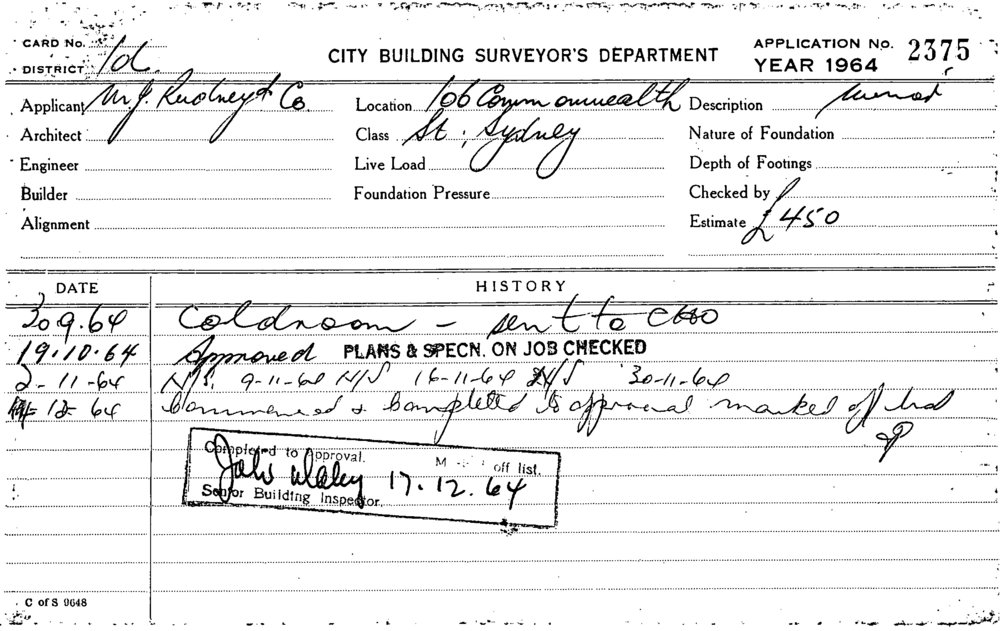 CARD No.
CITY BUILDING SURVEYOR'S DEPARTMENT
APPLICATION No. 2375
DISTRICT 1d.
YEAR 1964
Applicant & Co.
Location 106 Commonwealth
Description
Architect
Class St., Sydney
Nature of Foundation
Engineer
Live Load
Depth of Footings
Builder
Foundation Pressure
Checked by
Alignment
Estimate £450
DATE
HISTORY
30.9.64 Coldroom - sent to
19.10.64 Approved PLANS & SPECN. ON JOB CHECKED
2-11-64 N/S. 9-11-64 N/S 16-11-64 N/S 30-11-64
12-64 Commenced & Completed to approval marked off list
Completed to approval. M off list.
17.12.64
Senior Building Inspector.
C of S 9648